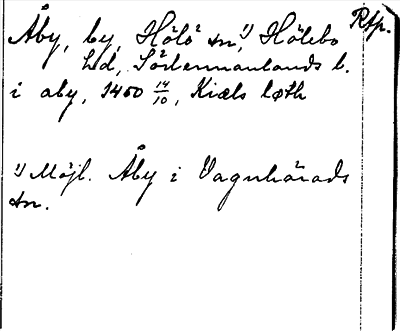 Rtp.
Åby, by, Hölö sn,¹⁾ Hölebo
hd, Södermanlands l.
i aby, 1400 14/10, Kiæls løth
¹⁾ Möjl. Åby i Vagnhärads
sn.